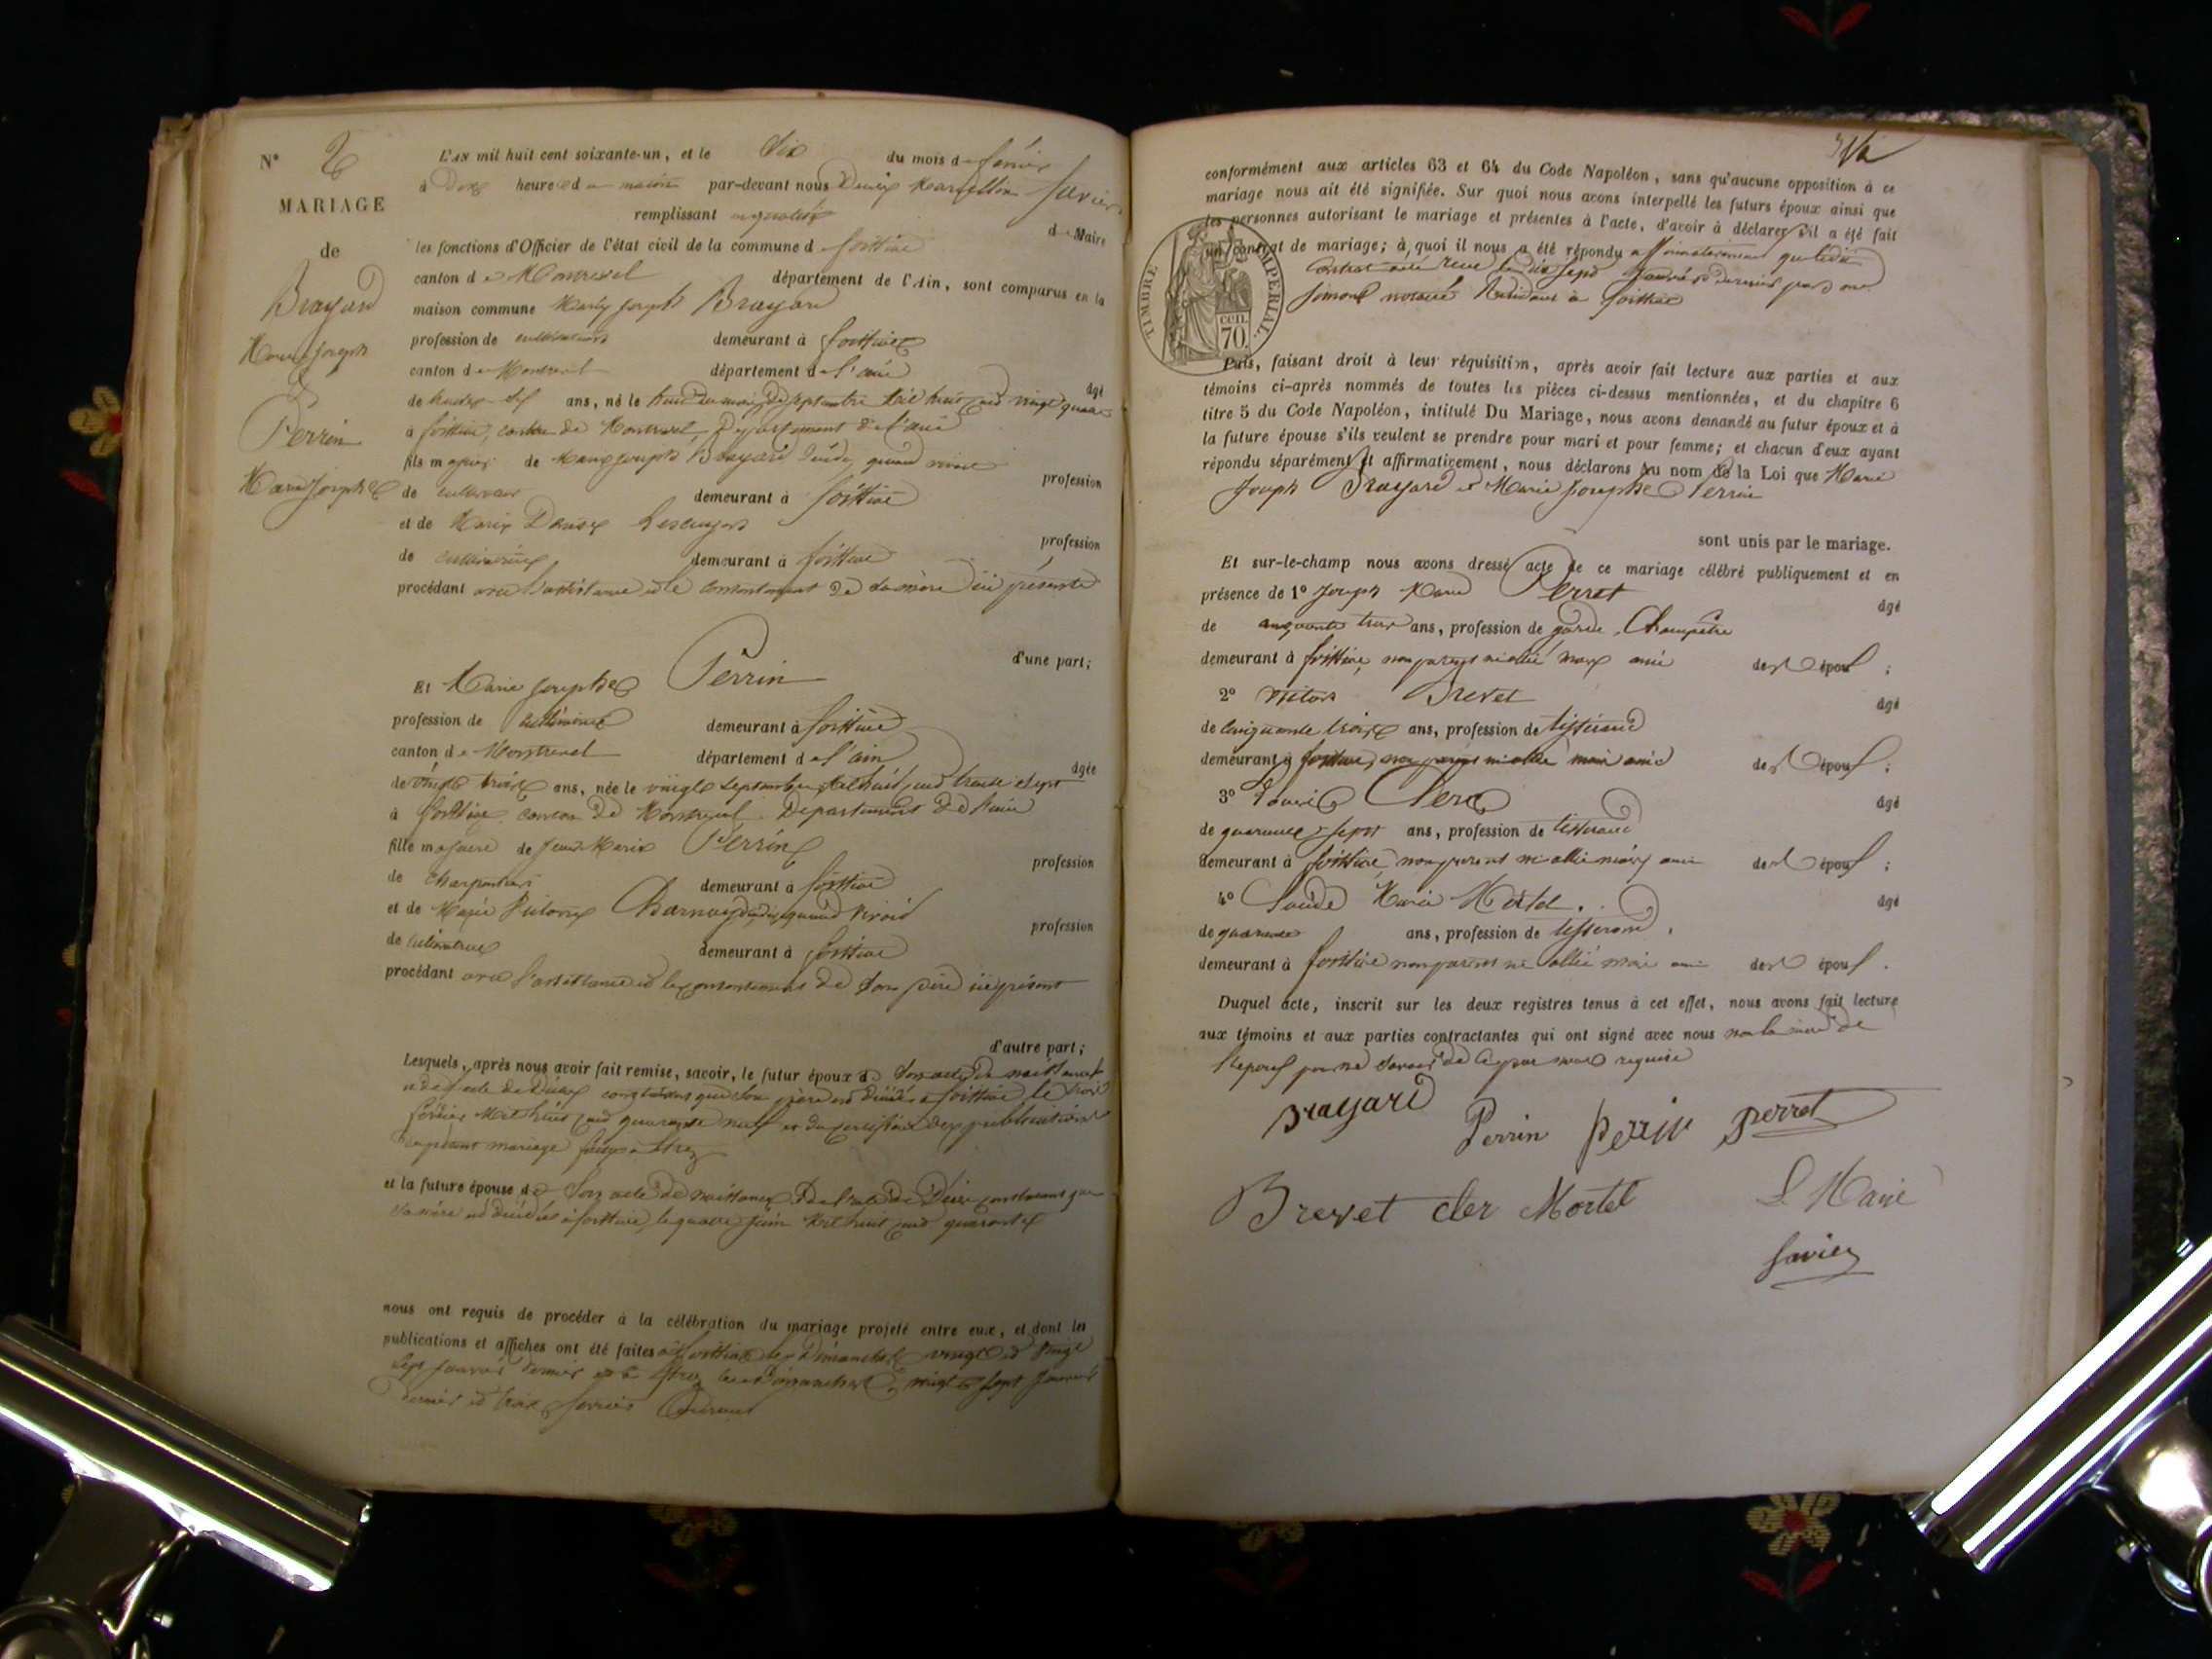 N° 2
MARIAGE
de
Brayard
Marie Joseph
&
Perrin
Marie Josephe
L'AN mil huit cent soixante-un, et le dix du mois de février
à heures du matin par-devant nous Savier
remplissant en qualité de Maire
les fonctions d'Officier de l'état civil de la commune d
canton de Montrevel département de l'Ain, sont comparus en la
maison commune Marie Joseph Brayard
profession de cultivateur demeurant à
canton de Montrevel département de l'ain âgé
de ans, né le huit du mois de septembre mil huit cent vingt quatre
à canton de Montrevel, Département de l'ain
fils majeur de Marie Joseph Brayard quand vivait profession
de cultivateur demeurant à
et de Marie Denise profession
de cultivatrice demeurant à
procédant avec l'assistance et le consentement de sa mère ici présente
d'une part;
Et Marie Josephe Perrin
profession de cultivatrice demeurant à
canton de Montrevel département de l'ain âgée
de vingt trois ans, née le vingt septembre mil huit cent trente sept
à canton de Montrevel Département de l'ain
fille majeure de Jean Marie Perrin profession
de charpentier demeurant à
et de Marie quand vivait profession
de cultivatrice demeurant à
procédant avec l'assistance et le consentement de son père ici présent
d'autre part;
Lesquels, après nous avoir fait remise, savoir, le futur époux de son acte de naissance
et de l'acte de décès constatant que son père est décédé à le trois
février mil huit cent quarante neuf et du certificat des publications
du présent mariage
et la future épouse de son acte de naissance, de l'acte de décès constatant que
sa mère est décédée à le quatre juin mil huit cent quarante
nous ont requis de procéder à la célébration du mariage projeté entre eux, et dont les
publications et affiches ont été faites à les Dimanches vingt et vingt
sept janvier dernier et à les dimanches vingt sept janvier
dernier et trois février courant
conformément aux articles 63 et 64 du Code Napoléon, sans qu'aucune opposition à ce
mariage nous ait été signifiée. Sur quoi nous avons interpellé les futurs époux ainsi que
les personnes autorisant le mariage et présentes à l'acte, d'avoir à déclarer s'il a été fait
un contrat de mariage; à quoi il nous a été répondu affirmativement que ledit
contrat a été reçu le dix sept janvier dernier par me
notaire résidant à
TIMBRE IMPERIAL
70 cen.
Puis, faisant droit à leur réquisition, après avoir fait lecture aux parties et aux
témoins ci-après nommés de toutes les pièces ci-dessus mentionnées, et du chapitre 6
titre 5 du Code Napoléon, intitulé Du Mariage, nous avons demandé au futur époux et à
la future épouse s'ils veulent se prendre pour mari et pour femme; et chacun d'eux ayant
répondu séparément et affirmativement, nous déclarons au nom de la Loi que Marie
Joseph Brayard et Marie Josephe Perrin
sont unis par le mariage.
Et sur-le-champ nous avons dressé acte de ce mariage célébré publiquement et en
présence de 1° Joseph Marie Perret âgé
de cinquante trois ans, profession de garde Champêtre
demeurant à non parent ni allié mais ami des époux ;
2° Brevet âgé
de cinquante trois ans, profession de tisserand
demeurant à non parent ni allié mais ami des époux ;
3° Clerc âgé
de quarante sept ans, profession de tisserand
demeurant à non parent ni allié mais ami des époux ;
4° Claude Marie Mortel. âgé
de quarante ans, profession de tisserand,
demeurant à non parent ni allié mais ami des époux.
Duquel acte, inscrit sur les deux registres tenus à cet effet, nous avons fait lecture
aux témoins et aux parties contractantes qui ont signé avec nous non la mère de
l'époux pour ne savoir de ce par nous requise
Brayard Perrin Perrin Perret
Brevet Clerc Mortel Le Maire
Savier